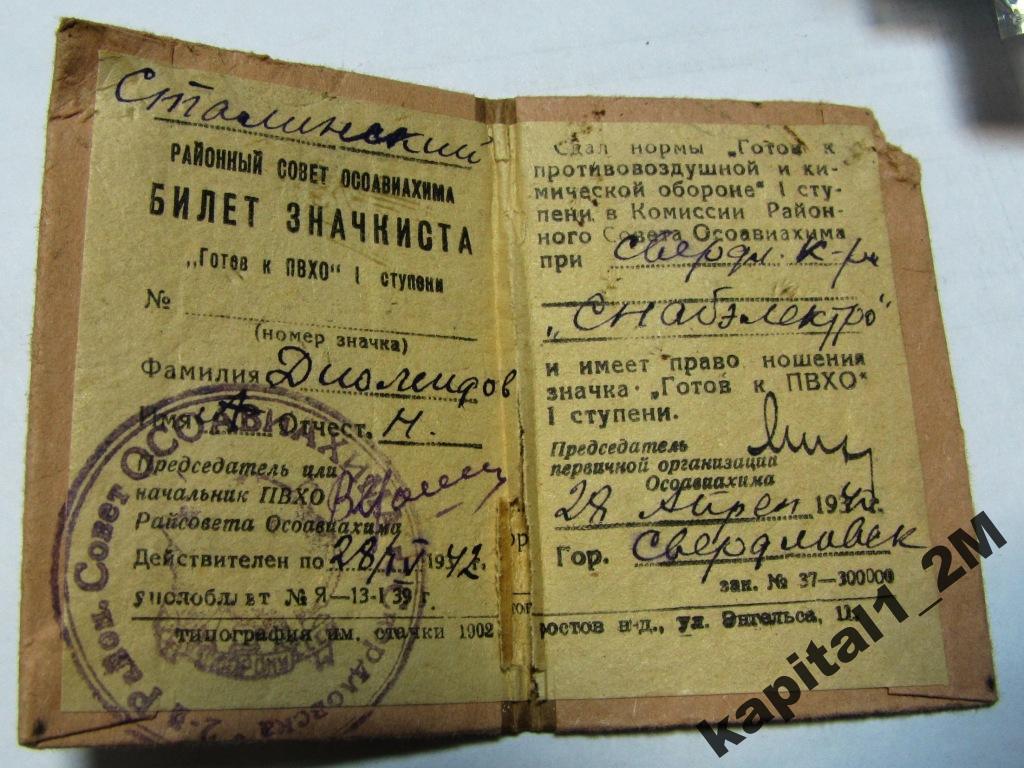 Сталинский
РАЙОННЫЙ СОВЕТ ОСОАВИАХИМА
БИЛЕТ ЗНАЧКИСТА
„Готов к ПВХО" I ступени
№
(номер значка)
Фамилия Диомидов
Имя А. Отчест. Н.
Председатель или
начальник ПВХО
Райсовета Осоавиахима
Действителен по 28/IV 1942 г.
уполоблит № Я—13-I 39 г
типография им. стачки 1902
Сдал нормы „Готов к
противовоздушной и хи-
мической обороне" I сту-
пени в Комиссии Район-
ного Совета Осоавиахима
при Свердл. к-ра
„Снабэлектро"
и имеет право ношения
значка „Готов к ПВХО"
I ступени.
Председатель
первичной организации
Осоавиахима
28 Апрел 194 г.
Гор. Свердловск
зак. № 37—300000
ростов н-д., ул. Энгельса, 11
Район. Совет ОСОАВИАХИМ
kapital1_2M